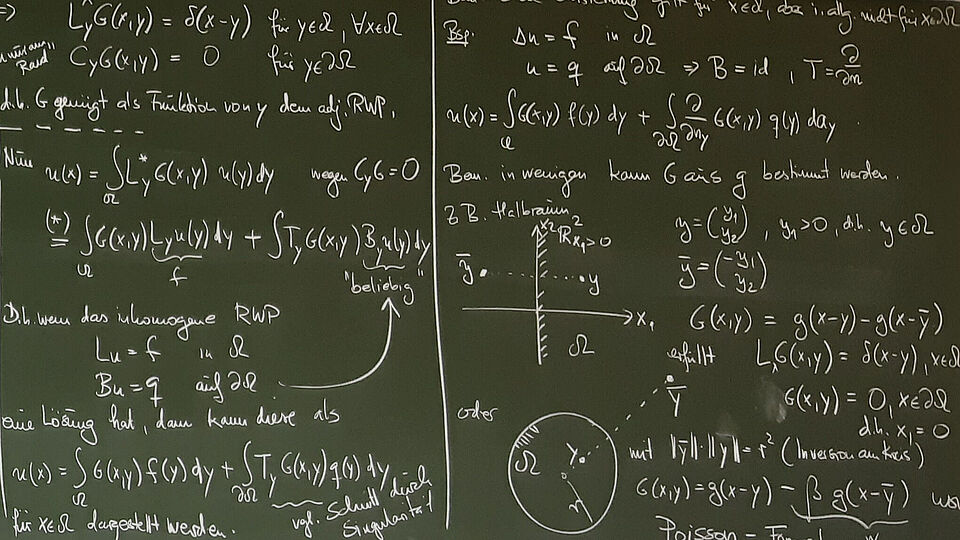 ⇒ L*_y G(x,y) = δ(x-y) für y∈Ω, ∀x∈Ω
Rand C_y G(x,y) = 0 für y∈∂Ω
d.h. G genügt als Funktion von y dem adj. RWP.
Nun u(x) = ∫_Ω L*_y G(x,y) u(y) dy wegen C_y G = 0
(*) = ∫_Ω G(x,y) L_y u(y) dy + ∫ T_y G(x,y) B_y u(y) dy
f "beliebig"
D.h. wenn das inhomogene RWP
Lu = f in Ω
Bu = q auf ∂Ω
eine Lösung hat, dann kann diese als
u(x) = ∫_Ω G(x,y) f(y) dy + ∫_∂Ω T_y G(x,y) q(y) dy
für x∈Ω dargestellt werden. vgl. Schnitt durch
Singularität
für x∈Ω, aber i. allg. nicht für x∈∂Ω
Bsp: Δu = f in Ω
u = q auf ∂Ω ⇒ B = id, T = ∂/∂n
u(x) = ∫_Ω G(x,y) f(y) dy + ∫_∂Ω ∂/∂n_y G(x,y) q(y) da_y.
Bem. in wenigen kann G aus g bestimmt werden.
z.B. Halbraum
x_2 ℝ²_{x_1>0}
ȳ y
x_1
Ω
y = (y_1 y_2), y_1>0, d.h. y∈Ω
ȳ = (-y_1 y_2)
G(x,y) = g(x-y) - g(x-ȳ)
erfüllt L_x G(x,y) = δ(x-y), x∈Ω
G(x,y) = 0, x∈∂Ω
d.h. x_1 = 0
oder
Ω y ȳ r
mit ‖y‖·‖ȳ‖ = r² (Inversion am Kreis)
G(x,y) = g(x-y) - β g(x-ȳ)
Poisson -